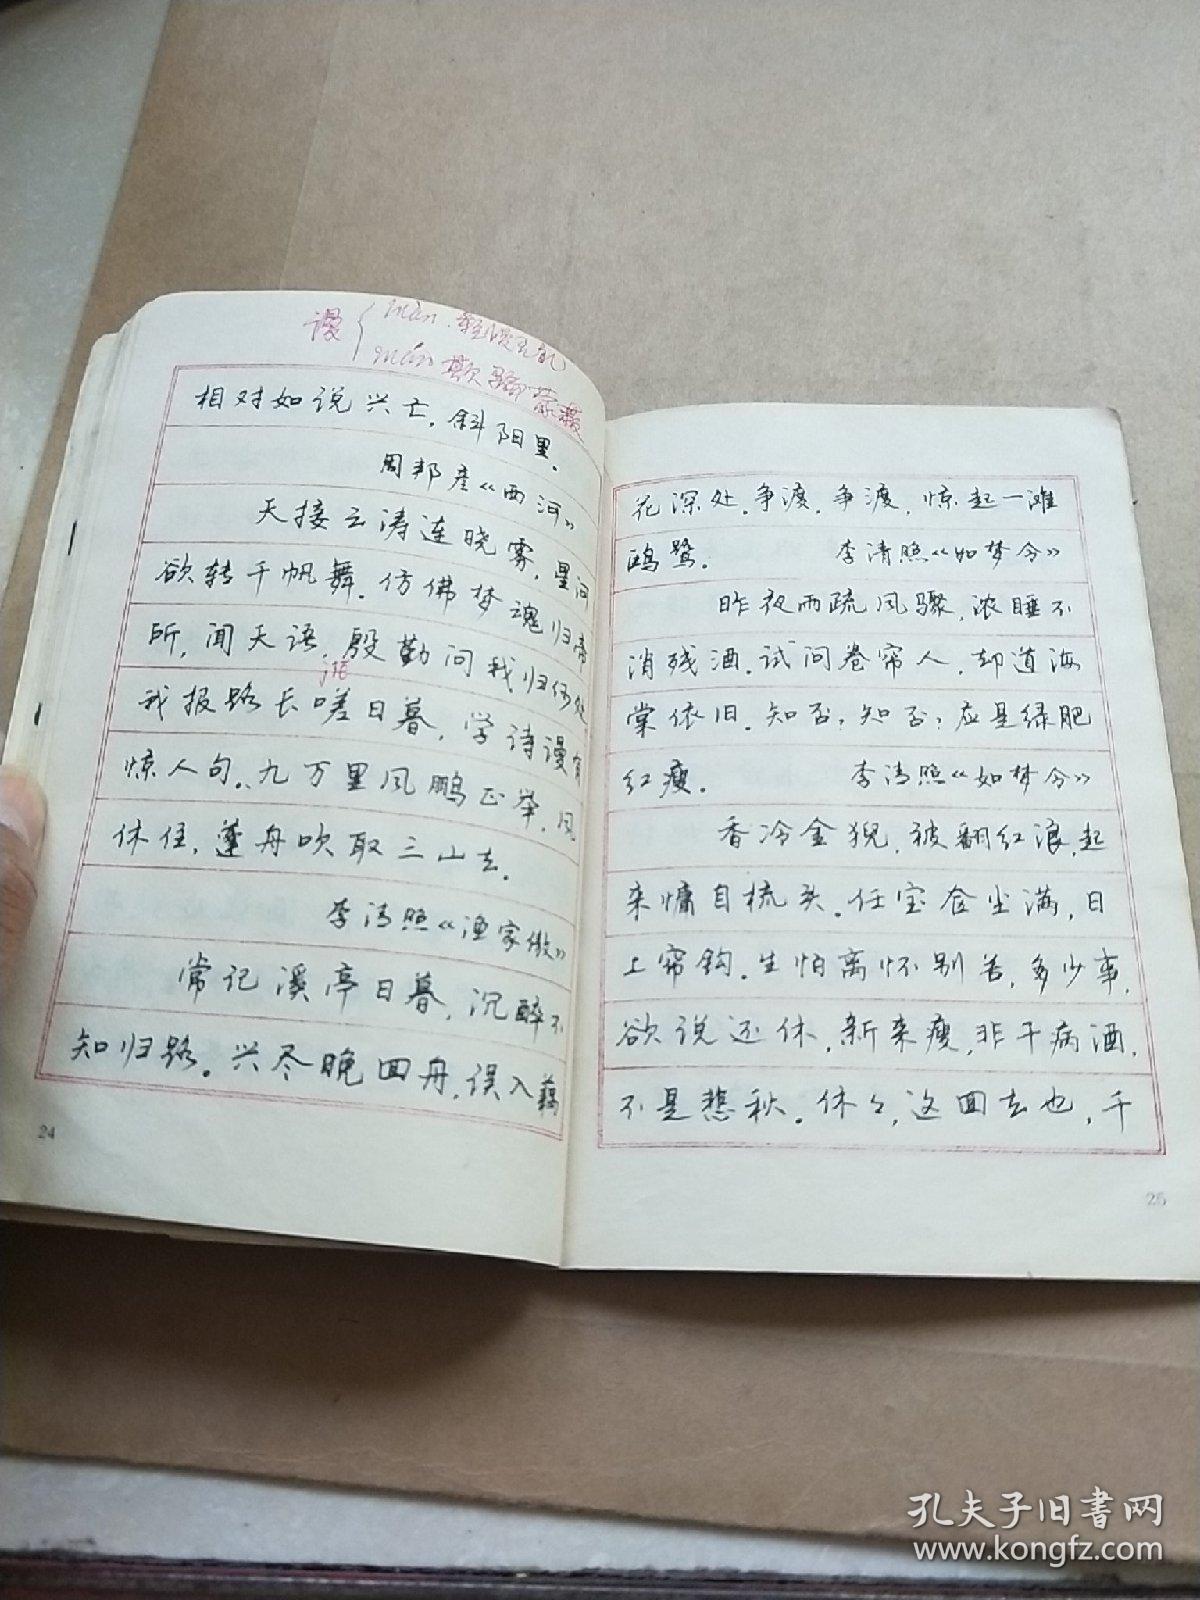 谩 màn 轻慢无礼
mán 欺骗 蒙蔽
相对如说兴亡，斜阳里。
周邦彦《西河》
天接云涛连晓雾，星河
欲转千帆舞。仿佛梦魂归帝
所，闻天语，殷勤问我归何处
jiē
我报路长嗟日暮，学诗谩有
惊人句。九万里风鹏正举，风
休住，蓬舟吹取三山去。
李清照《渔家傲》
常记溪亭日暮，沉醉不
知归路。兴尽晚回舟，误入藕
24
花深处。争渡，争渡，惊起一滩
鸥鹭。 李清照《如梦令》
昨夜雨疏风骤，浓睡不
消残酒。试问卷帘人，却道海
棠依旧。知否？知否？应是绿肥
红瘦。 李清照《如梦令》
香冷金猊，被翻红浪，起
来慵自梳头。任宝奁尘满，日
上帘钩。生怕离怀别苦，多少事，
欲说还休。新来瘦，非干病酒，
不是悲秋。休々，这回去也，千
25
孔夫子旧书网
www.kongfz.com